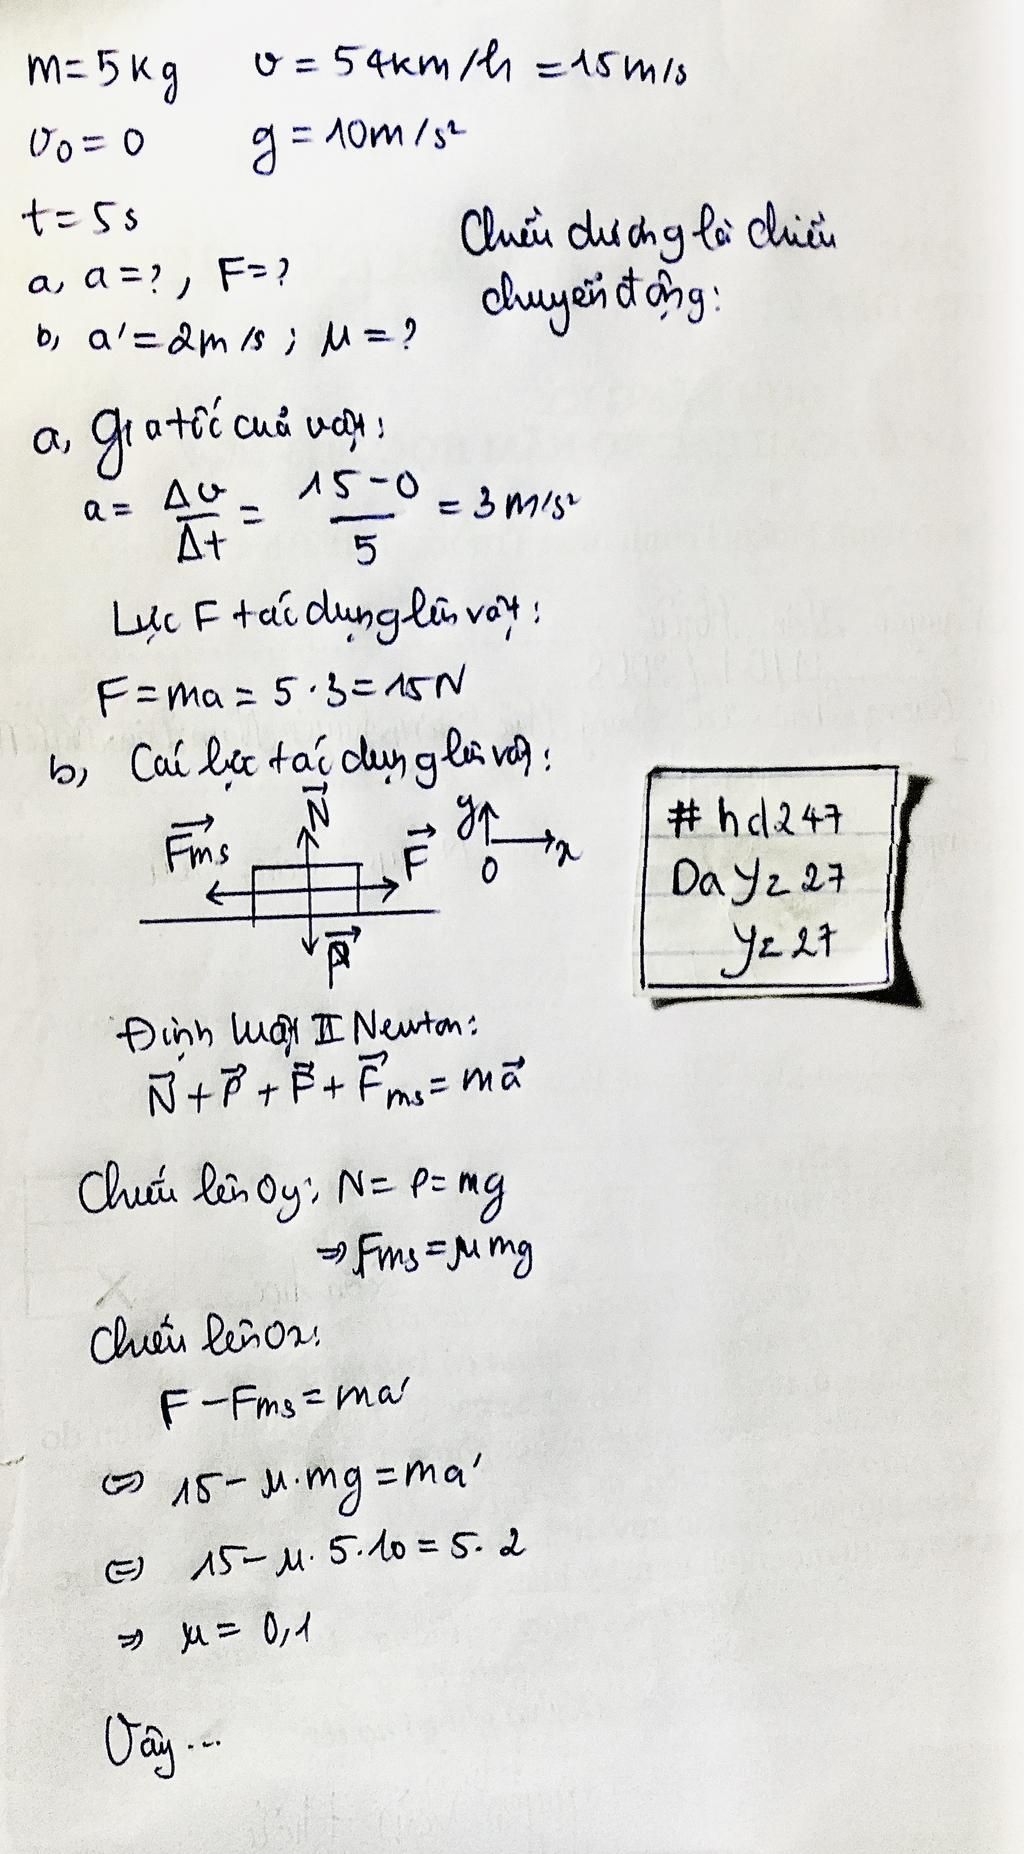 m=5kg v = 54km/h =15m/s
v₀= 0 g = 10m/s²
t= 5s
Chiều dương là chiều
chuyển động:
a, a=?, F=?
b, a'=2m/s ; μ =?
a, Gia tốc của vật:
a= Δv/Δt = (15-0)/5 = 3m/s²
Lực F tác dụng lên vật:
F=ma= 5·3=15N
b, Các lực tác dụng lên vật:
N⃗
F⃗ms F⃗
y
O x
P⃗
#hd247
Dayz27
yz27
Định luật II Newton:
N⃗+P⃗+F⃗+F⃗ms=ma⃗
Chiếu lên Oy: N= P=mg
⇒Fms=μmg
Chiếu lên Ox:
F-Fms=ma'
⇔ 15-μ.mg=ma'
⇔ 15-μ.5.10=5.2
⇒ μ= 0,1
Vậy...